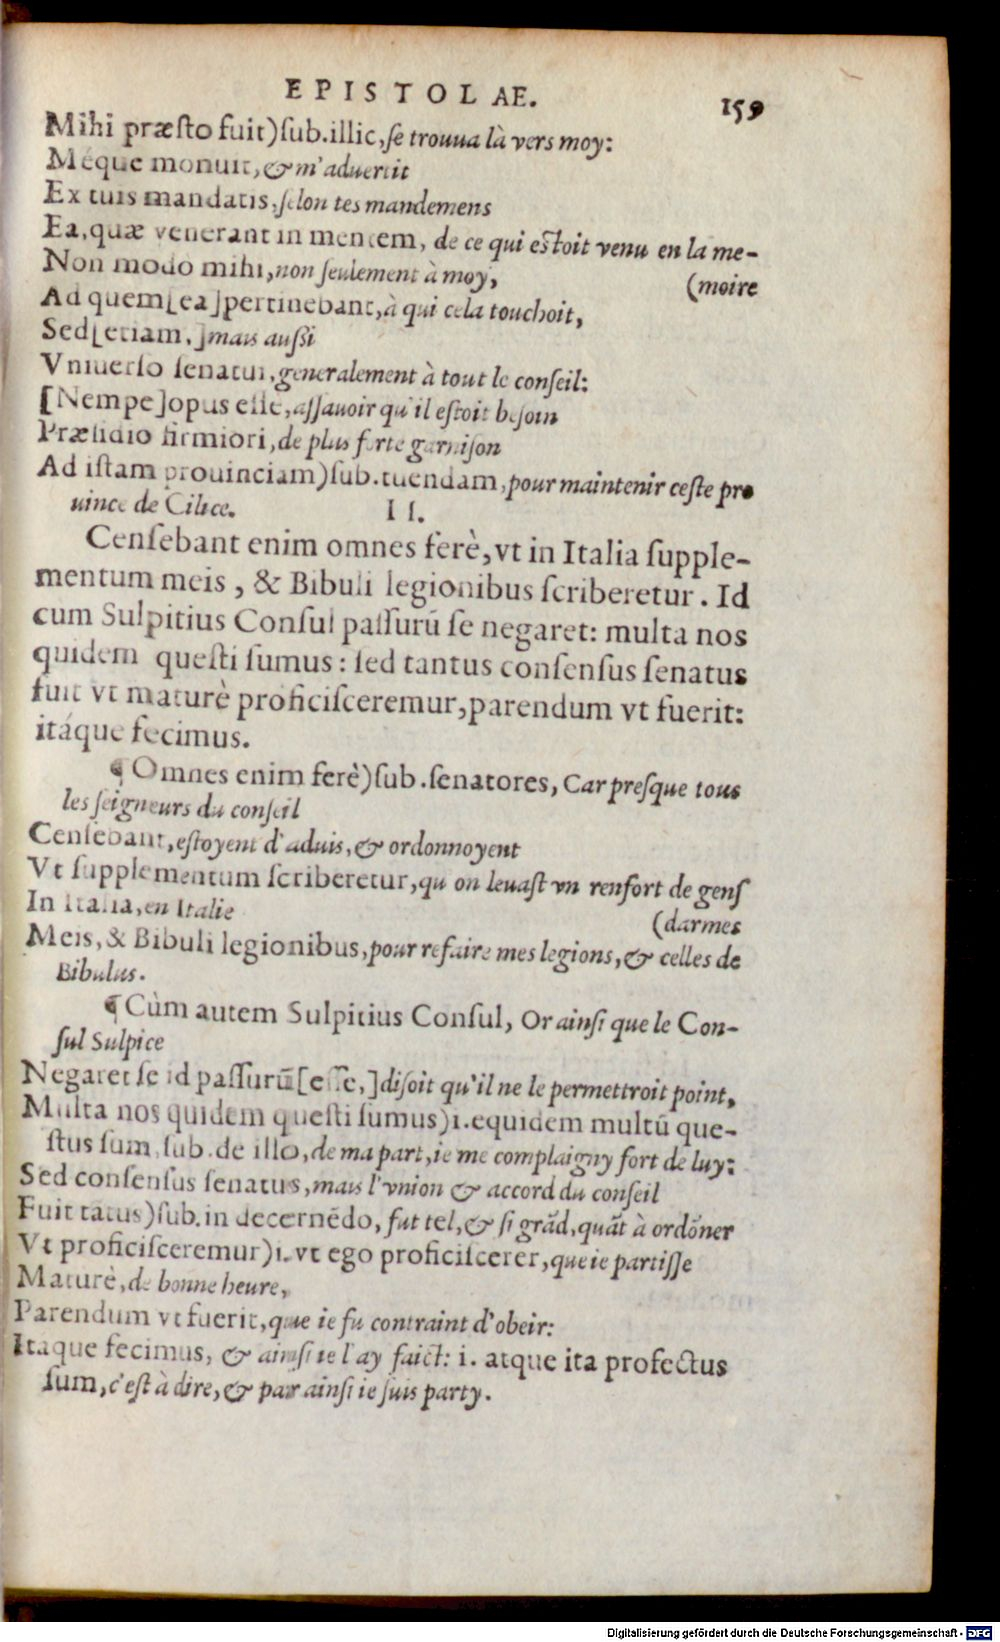 EPISTOLAE. 159
Mihi præsto fuit)ſub.illic,ſe trouua là vers moy:
Méque monuit,& m'aduertit
Ex tuis mandatis,ſelon tes mandemens
Ea,quæ venerant in mentem, de ce qui eſtoit venu en la me-
Non modo mihi,non ſeulement à moy, (moire
Ad quem[ea]pertinebant,à qui cela touchoit,
Sed[etiam,]mais auſſi
Vniuerſo ſenatui,generalement à tout le conſeil:
[Nempe]opus eſſe,aſſauoir qu'il eſtoit beſoin
Præſidio firmiori,de plus forte garniſon
Ad iſtam prouinciam)ſub.tuendam,pour maintenir ceſte pro
uince de Cilice. II.
Cenſebant enim omnes ferè,vt in Italia ſupple-
mentum meis, & Bibuli legionibus ſcriberetur. Id
cum Sulpitius Conſul paſſurū ſe negaret: multa nos
quidem queſti ſumus: ſed tantus conſenſus ſenatus
fuit vt maturè proficiſceremur,parendum vt fuerit:
itáque fecimus.
¶ Omnes enim ferè)ſub.ſenatores, Car preſque tous
les ſeigneurs du conſeil
Cenſebant,eſtoyent d'aduis,& ordonnoyent
Vt ſupplementum ſcriberetur,qu on leuaſt vn renfort de genſ
In Italia,en Italie (darmes
Meis,& Bibuli legionibus,pour refaire mes legions,& celles de
Bibulus.
¶ Cùm autem Sulpitius Conſul, Or ainſi que le Con-
ſul Sulpice
Negaret ſe id paſſurū[eſſe,]diſoit qu'il ne le permettroit point,
Multa nos quidem queſti ſumus)i.equidem multū que-
ſtus ſum,ſub.de illo,de ma part,ie me complaigny fort de luy:
Sed conſenſus ſenatus,mais l'vnion & accord du conſeil
Fuit tātus)ſub.in decernēdo, fut tel,& ſi grād,quāt à ordōner
Vt proficiſceremur)i.vt ego proficiſcerer,que ie partiſſe
Maturè,de bonne heure,
Parendum vt fuerit,que ie fu contraint d'obeir:
Itaque fecimus, & ainſi ie l'ay faict: i. atque ita profectus
ſum,c'eſt à dire,& par ainſi ie ſuis party.
Digitalisierung gefördert durch die Deutsche Forschungsgemeinschaft - DFG